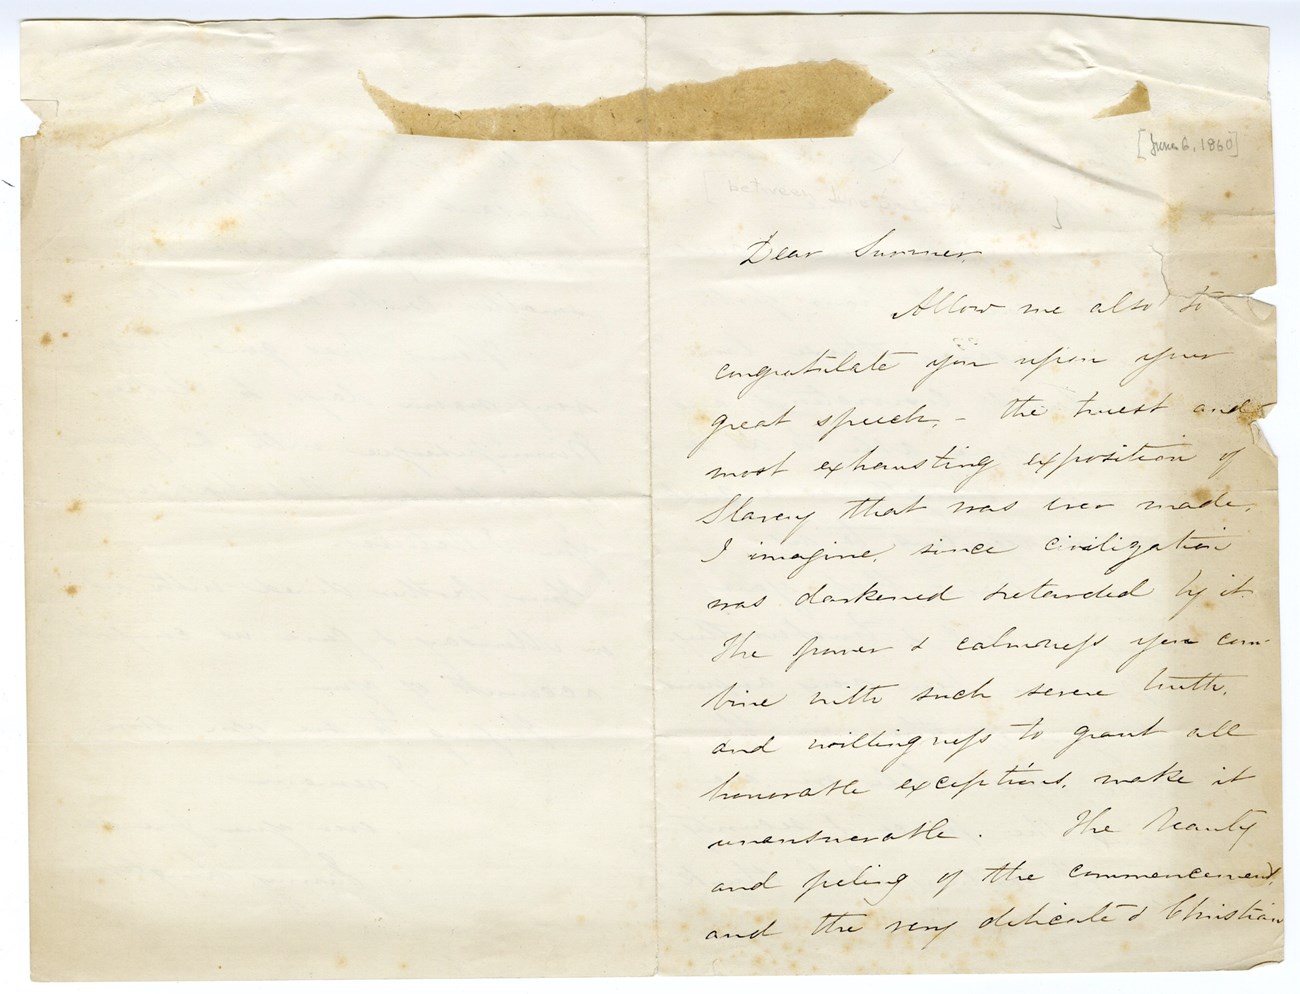 [June 6, 1860]
[between
Dear Sumner,
Allow me also to
congratulate you upon your
great speech, – the truest and
most exhausting exposition of
Slavery that was ever made,
I imagine, since civilization
was darkened & retarded by it.
The power & calmness you com-
bine with such severe truth,
and willingness to grant all
honorable exceptions, make it
unanswerable. The beauty
and feeling of the commencement,
and the very delicate & Christian